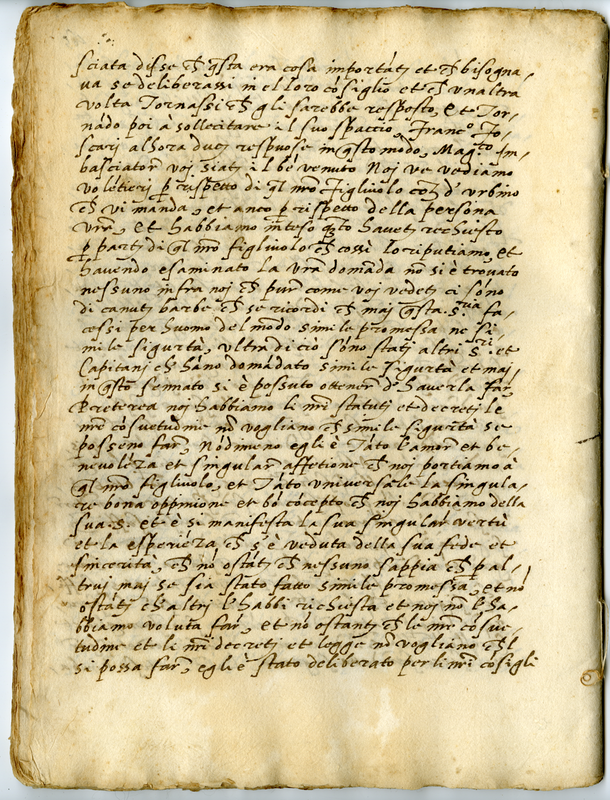 sciata disse ch̃ q̃sta era cosa importãti et ch̃ bisogna,
ua se deliberassi in el loro cõsiglio et ch̃ unaltra
volta tornassi ch̃ gli sarebbe resposto, Et Tor,
nãdo poi à sollecitare il suo spaccio, Francº. Fo,
scarj alhora duci respuose in q̃sto modo, Mag.co Im,
basciator voj siati il bẽ venuto Noj ve vediamo
volẽtierj p respetto di ql nr̃o figliuolo co: d'urbino
ch̃ vi manda, et anco p rispetto della persona
vr̃a, Et habbiamo inteso q̃to haveti richiesto
p parti di ql nr̃o figliuolo ch̃ cossì lo riputiamo, et
havendo esaminato la vr̃a domãda nõ si è trovato
nessuno infra noj ch̃ pur come voj vedeti ci sõno
di canuti barbe ch̃ se ricordi ch̃ maj q̃sta .S.ria fa,
cessi per huomo del mõdo simile promessa ne si,
mile sigurtà, ultra di ciò sõno statj altri S.ri et
Capitanj ch̃ hãno domãdato simile sigurtà et maj
in q̃sto sennato si è possuto ottener d'haverla far,
Preterea noj habbiamo li nr̃i statuti et decretj le
nr̃e cõsuetudine nõ vogliano ch̃ simile sigurtà se
possino far, Nõdimeno egli è Tãto l'amor et be
nevolẽza et singular affetione ch̃ noj portiamo à
ql nr̃o figliuolo, et Tãto universale la singula,
re bona oppinione et bõ cõcepto ch̃ noj habbiamo della
sua .S. et è si manifesta la sua singular vertù
et la esperiẽza ch̃ s'è veduta della sua fede et
sincerità, ch̃ nõ ostãti ch̃ nessuno sappia ch̃ p al,
truj maj se sia stato fatto simile promessa, et nõ
ostãti ch̃ altrj l'habbi richiesta et noj nõ l'ha,
bbiamo voluta far, et nõ ostanti ch̃ le nr̃e cõsue
tudine et li nr̃i decretj et legge nõ vogliano ch̃ l
si possa far, egli è stato deliberato per li nr̃i cõsigli